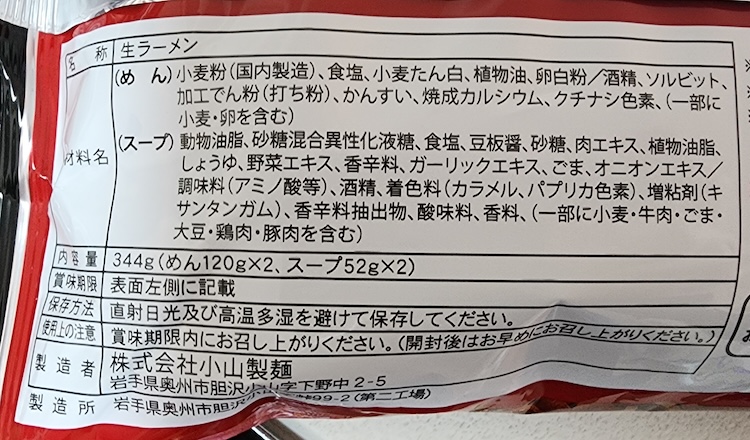 名称 生ラーメン
(めん) 小麦粉(国内製造)、食塩、小麦たん白、植物油、卵白粉/酒精、ソルビット、
加工でん粉(打ち粉)、かんすい、焼成カルシウム、クチナシ色素、(一部に
小麦・卵を含む)
原材料名
(スープ) 動物油脂、砂糖混合異性化液糖、食塩、豆板醤、砂糖、肉エキス、植物油脂、
しょうゆ、野菜エキス、香辛料、ガーリックエキス、ごま、オニオンエキス/
調味料(アミノ酸等)、酒精、着色料(カラメル、パプリカ色素)、増粘剤(キ
サンタンガム)、香辛料抽出物、酸味料、香料、(一部に小麦・牛肉・ごま・
大豆・鶏肉・豚肉を含む)
内容量 344g(めん120g×2、スープ52g×2)
賞味期限 表面左側に記載
保存方法 直射日光及び高温多湿を避けて保存してください。
使用上の注意 賞味期限内にお召し上がりください。(開封後はお早めにお召し上がりください。)
製造者 株式会社小山製麺
岩手県奥州市胆沢小山字下野中2-5
製造所 岩手県奥州市胆沢小山 99-2(第二工場)